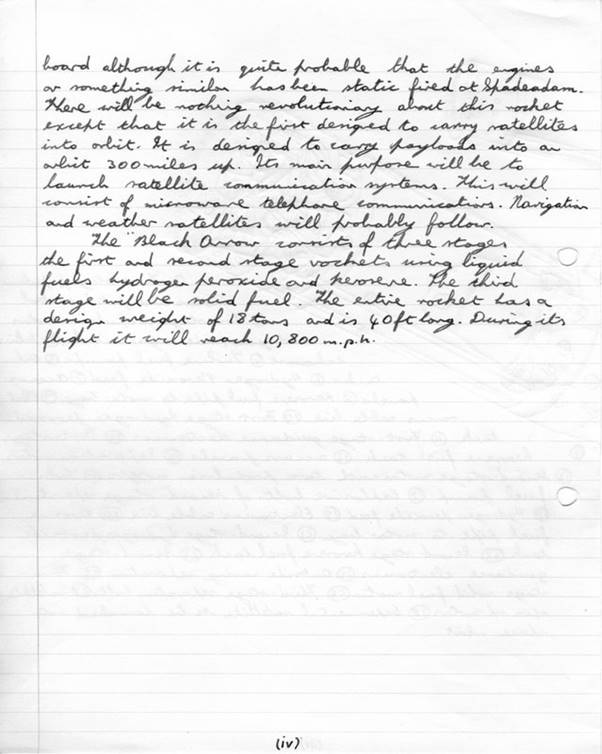 board although it is quite probable that the engines
or something similar has been static fired at Spadeadam.
There will be nothing revolutionary about this rocket
except that it is the first designed to carry satellites
into orbit. It is designed to carry payloads into an
orbit 300 miles up. Its main purpose will be to
launch satellite communication systems. This will
consist of microwave telephone communications. Navigation
and weather satellites will probably follow.
The "Black Arrow consists of three stages
the first and second stage rockets using liquid
fuels hydrogen peroxide and kerosene. The third
stage will be solid fuel. The entire rocket has a
design weight of 18 tons and is 40ft long. During its
flight it will reach 10,800 m.p.h.
(iv)